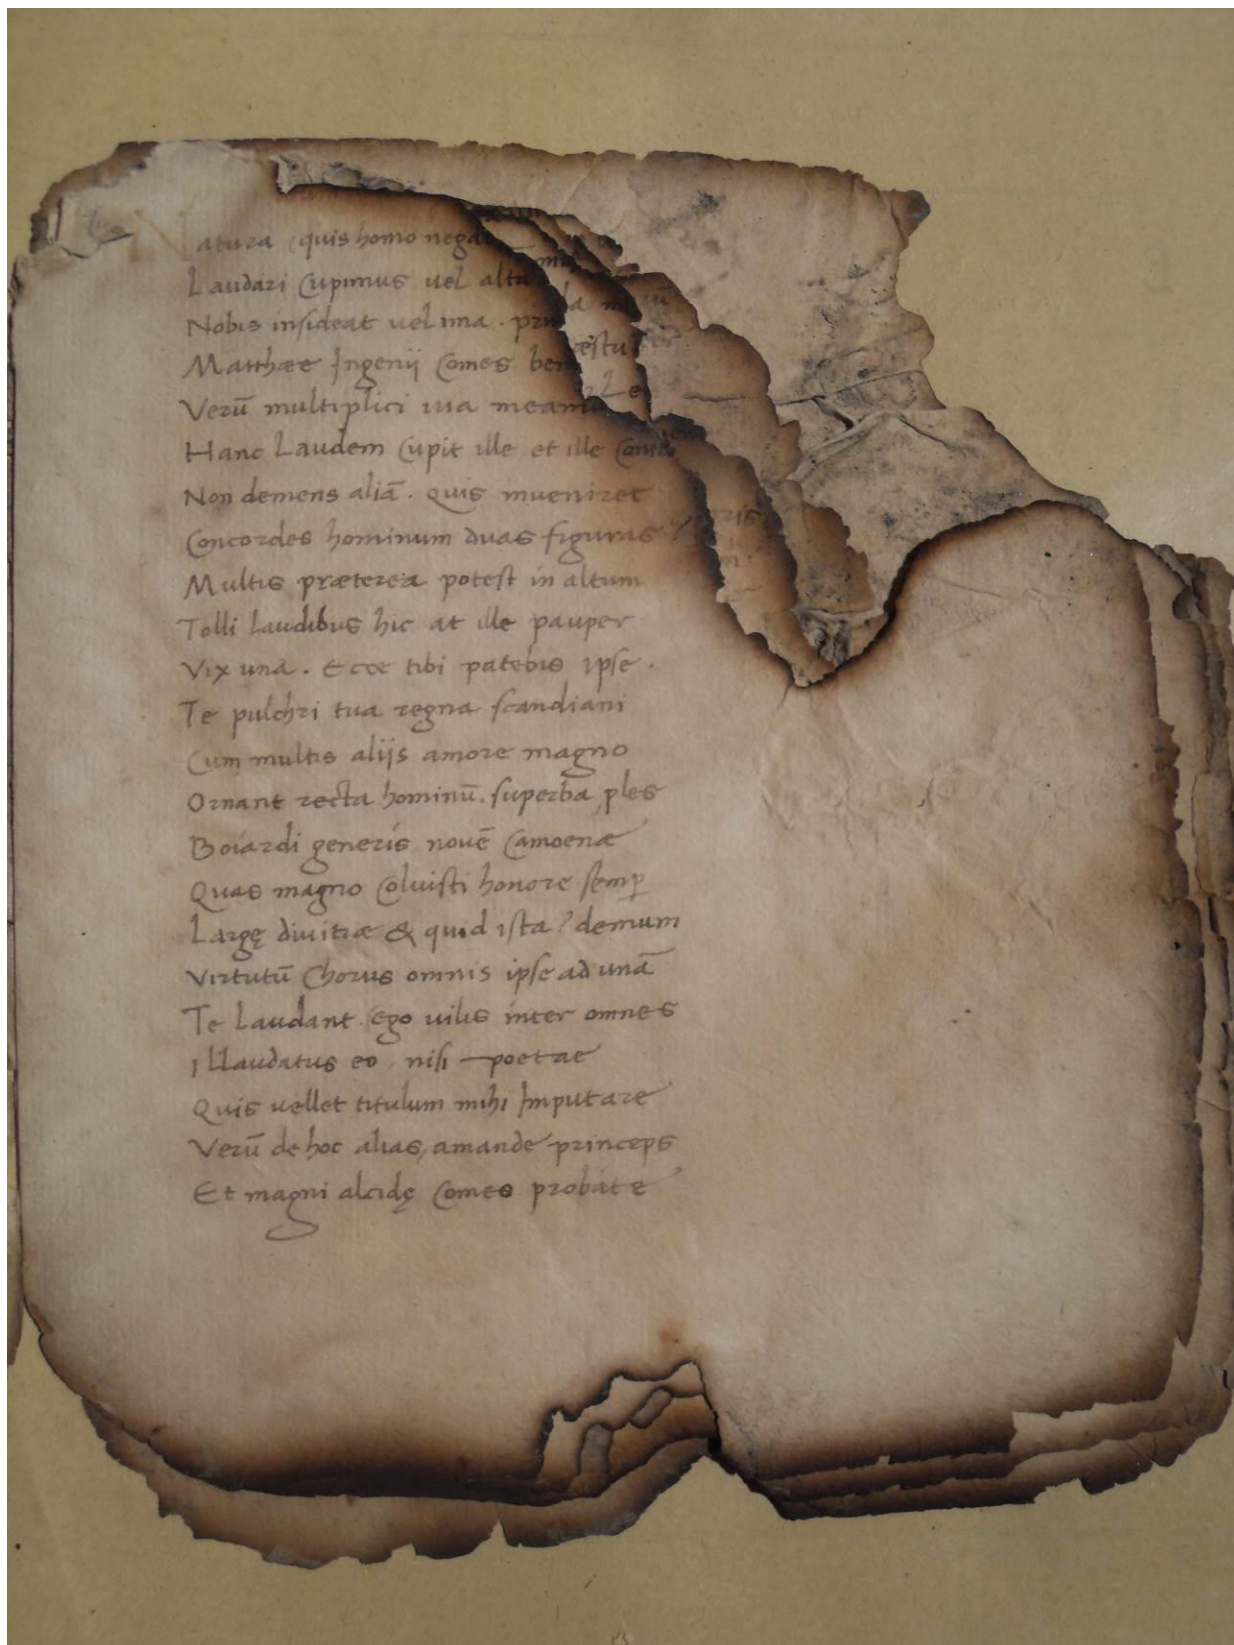 atura quis homo nega
Laudari Cupimus vel alta
Nobis insideat vel ima . pri
Matthæe Ingenii Comes be
Verū multiplici via meam
Hanc Laudem Cupit ille et ille
Non demens aliā . Quis inveniret
Concordes hominum duas figuras
Multis præterea potest in altum
Tolli Laudibus hic at ille pauper
Vix una . Ecce tibi patebis ipse .
Te pulchri tua regna scandiani
Cum multis aliis amore magno
Ornant recta hominū . superba ples
Boiardi generis novē Camoenæ
Quas magno Coluisti honore semꝑ
Largę divitiæ & quid ista ? demum
Virtutū Chorus omnis ipse ad unā
Te Laudant . Ego vilis inter omnes
Illaudatus eo . nisi poetae
Quis vellet titulum mihi Imputare
Verū de hoc alias, amande princeps
Et magni alcidę Comes probate